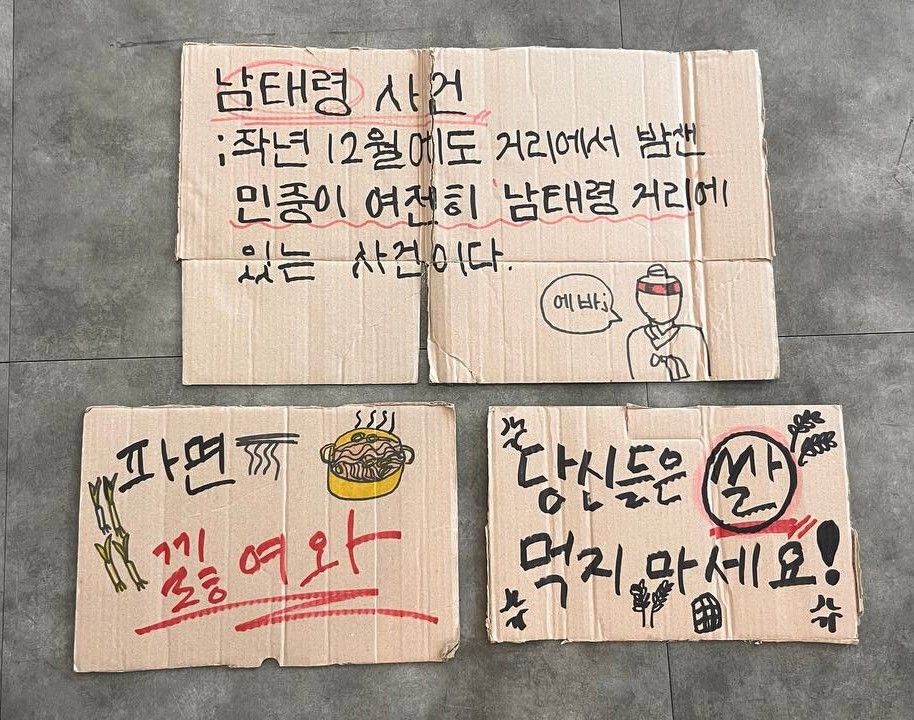 남태령 사건
;작년 12월에도 거리에서 밤샌
민중이 여전히 '남태령 거리에
있는 사건이다.
에바;
파면
낋여와
당신들은 쌀
먹지 마세요!